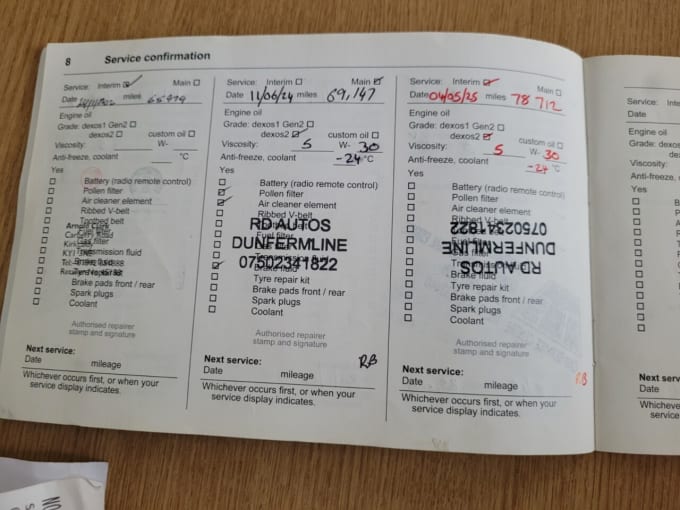 8 Service confirmation
Service: Interim Main
Date miles
Engine oil
Grade: dexos1 Gen2
dexos2 custom oil
Viscosity: W-
Anti-freeze, coolant °C
Yes
Battery (radio remote control)
Pollen filter
Air cleaner element
Ribbed V-belt
Toothed belt
Fuel filter
Gas filter
Transmission fluid
Brake fluid
Tyre repair kit
Brake pads front / rear
Spark plugs
Coolant
Arnold Clark
Authorised repairer
stamp and signature
Next service:
Date mileage
Whichever occurs first, or when your
service display indicates.
Service: Interim Main
Date 11/06/24 miles 69,147
Engine oil
Grade: dexos1 Gen2
dexos2 custom oil
Viscosity: 5 W- 30
Anti-freeze, coolant -24 °C
Yes
Battery (radio remote control)
Pollen filter
Air cleaner element
Ribbed V-belt
RD AUTOS
DUNFERMLINE
07502341822
Fuel filter
Transmission fluid
Brake fluid
Tyre repair kit
Brake pads front / rear
Spark plugs
Coolant
Authorised repairer
stamp and signature
RB
Next service:
Date mileage
Whichever occurs first, or when your
service display indicates.
Service: Interim Main
Date 04/05/25 miles 78 712
Engine oil
Grade: dexos1 Gen2
dexos2 custom oil
Viscosity: 5 W- 30
Anti-freeze, coolant -24 °C
Yes
Battery (radio remote control)
Pollen filter
Air cleaner element
Ribbed V-belt
07502341822
DUNFERMLINE
RD AUTOS
Brake fluid
Tyre repair kit
Brake pads front / rear
Spark plugs
Coolant
Authorised repairer
stamp and signature
Next service:
Date mileage
RB
Whichever occurs first, or when your
service display indicates.
Service:
Date
Engine oil
Grade:
Viscosity:
Anti-freeze,
Yes
Next
Date
service